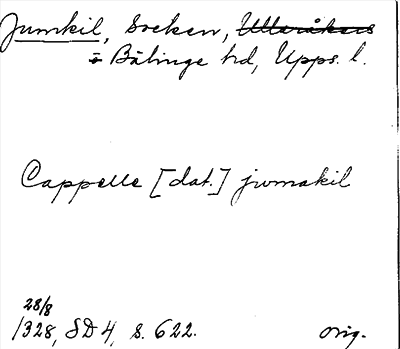 Jumkil, Socken, Ulleråkers
i Bälinge hd, Upps. l.
Cappelle [dat.] jwmakil
28/8
1328, SD 4, s. 622. orig.